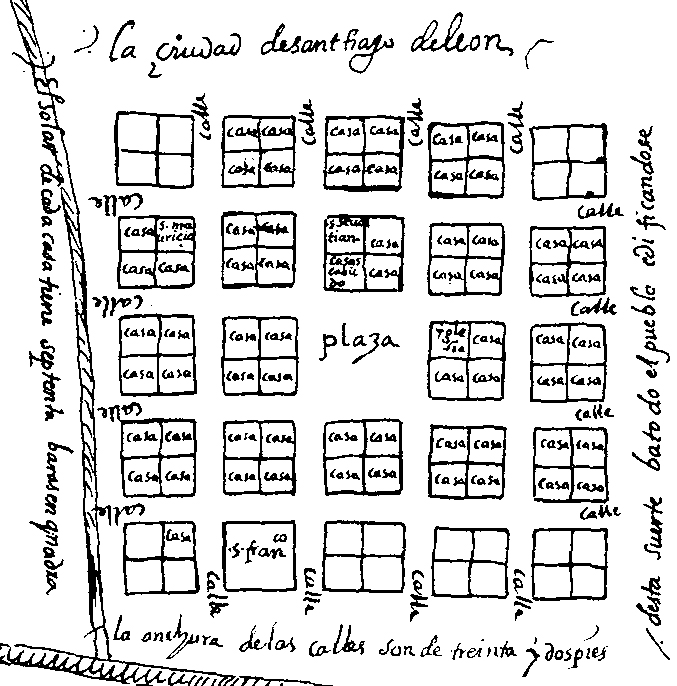 La çiudad desanthiago deleon
calle calle calle calle
casa casa casa casa casa casa
casa casa casa casa casa casa
calle calle
casa s. mau casa casa s. sebas casa casa casa casa
ricio tian casa
casa casa casa casa casas casa casa casa casa
cabil
do
calle calle
casa casa casa casa plaza ygle casa casa casa
sia
casa casa casa casa casa casa casa casa
calle calle
casa casa casa casa casa casa casa casa casa casa
casa casa casa casa casa casa casa casa casa casa
calle calle
casa
.s. fran co
calle calle calle calle
La anchura delas calles son de treinta y dos pies
El solar de cada casa tiene septenta baras en quadra
desta suerte ba todo el pueblo edi ficandose